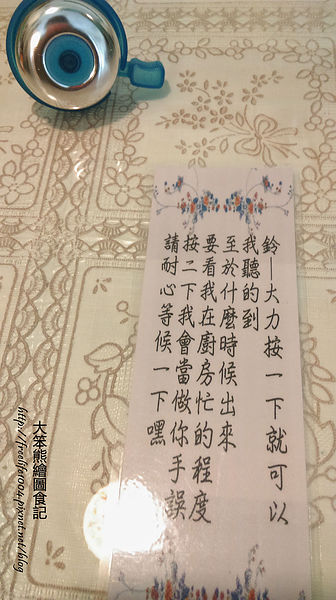 鈴—大力按一下就可以
我聽的到
至於什麼時候出來
要看我在廚房忙的程度
按二下我會當做你手誤
請耐心等候一下嘿
大笨熊繪圖食記
http://freelife1004.pixnet.net/blog